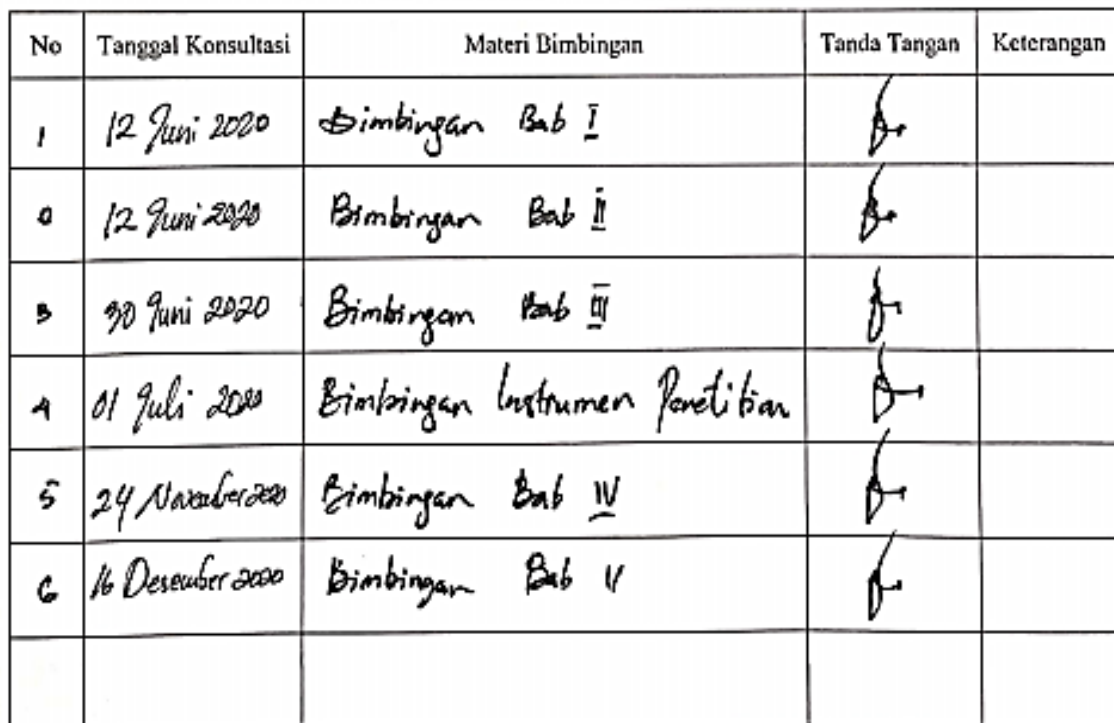 No Tanggal Konsultasi Materi Bimbingan Tanda Tangan Keterangan
1 12 Juni 2020 Bimbingan Bab I
12 Juni 2020 Bimbingan Bab II
3 30 Juni 2020 Bimbingan Bab III
4 01 Juli 2020 Bimbingan Instrumen Penelitian
5 24 November 2020 Bimbingan Bab IV
6 16 Desember 2020 Bimbingan Bab V